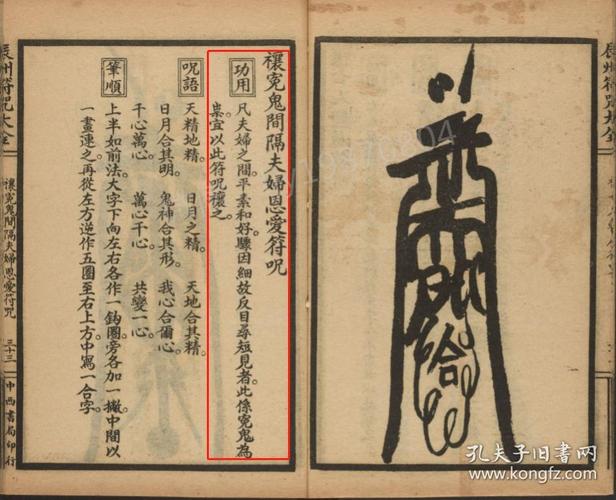 禳寃鬼間隔夫婦恩愛符咒
功用
凡夫婦之間。平素和好。驟因細故反目尋短見者。此係寃鬼為
祟。宜以此符咒禳之。
咒語
天精地精。 日月之精。 天地合其精。
日月合其明。 鬼神合其形。 我心合爾心。
千心萬心。 萬心千心。 共變一心。
筆順
上半如前法。大字下向左右各作一鈎圈。旁各加一撇。中間以
一畫連之。再從左方逆作五圈。至右上方。中寫一合字。
辰州符咒大全
禳寃鬼間隔夫婦恩愛符咒
三十三
中西書局印行
合
孔夫子旧书网
www.kongfz.com